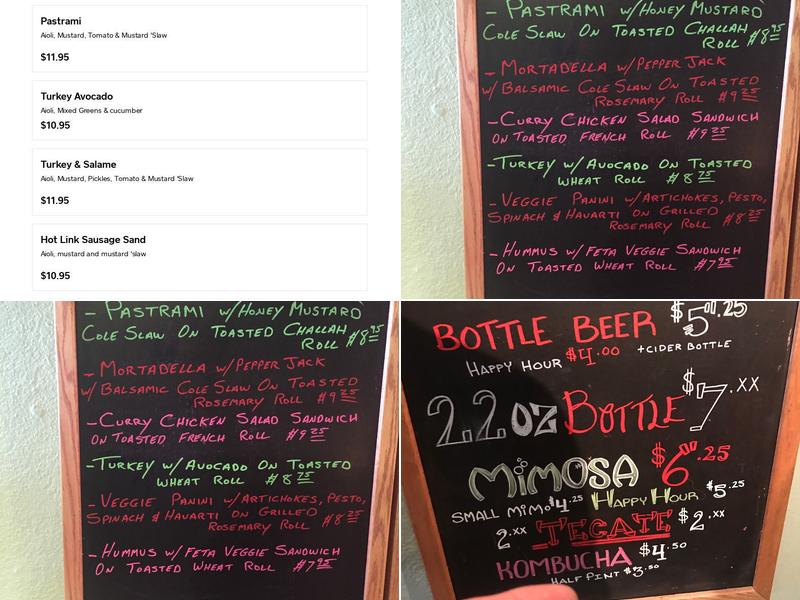 Pastrami
Aioli, Mustard, Tomato & Mustard 'Slaw
$11.95
Turkey Avocado
Aioli, Mixed Greens & cucumber
$10.95
Turkey & Salame
Aioli, Mustard, Pickles, Tomato & Mustard 'Slaw
$11.95
Hot Link Sausage Sand
Aioli, mustard and mustard 'slaw
$10.95
- PASTRAMI W/HONEY MUSTARD
COLE SLAW ON TOASTED CHALLAH
ROLL $8.95
- MORTADELLA W/PEPPER JACK
W/ BALSAMIC COLE SLAW ON TOASTED
ROSEMARY ROLL $9.25
- CURRY CHICKEN SALAD SANDWICH
ON TOASTED FRENCH ROLL $9.25
- TURKEY W/ AVOCADO ON TOASTED
WHEAT ROLL $8.75
- VEGGIE PANINI W/ARTICHOKES, PESTO,
SPINACH & HAVARTI ON GRILLED
ROSEMARY ROLL $8.25
- HUMMUS W/ FETA VEGGIE SANDWICH
ON TOASTED WHEAT ROLL $7.95
- PASTRAMI W/HONEY MUSTARD
COLE SLAW ON TOASTED CHALLAH
ROLL $8.95
- MORTADELLA W/PEPPER JACK
W/ BALSAMIC COLE SLAW ON TOASTED
ROSEMARY ROLL $9.25
- CURRY CHICKEN SALAD SANDWICH
ON TOASTED FRENCH ROLL $9.25
- TURKEY W/ AVOCADO ON TOASTED
WHEAT ROLL $8.75
- VEGGIE PANINI W/ARTICHOKES, PESTO,
SPINACH & HAVARTI ON GRILLED
ROSEMARY ROLL $8.25
- HUMMUS W/ FETA VEGGIE SANDWICH
ON TOASTED WHEAT ROLL $7.95
BOTTLE BEER $5.25
HAPPY HOUR $4.00 +CIDER BOTTLE
22oz BOTTLE $7.XX
MIMOSA $6.25
SMALL MIMO $4.25 HAPPY HOUR $5.25
2.XX TECATE $2.XX
KOMBUCHA $4.50
HALF PINT $3.50